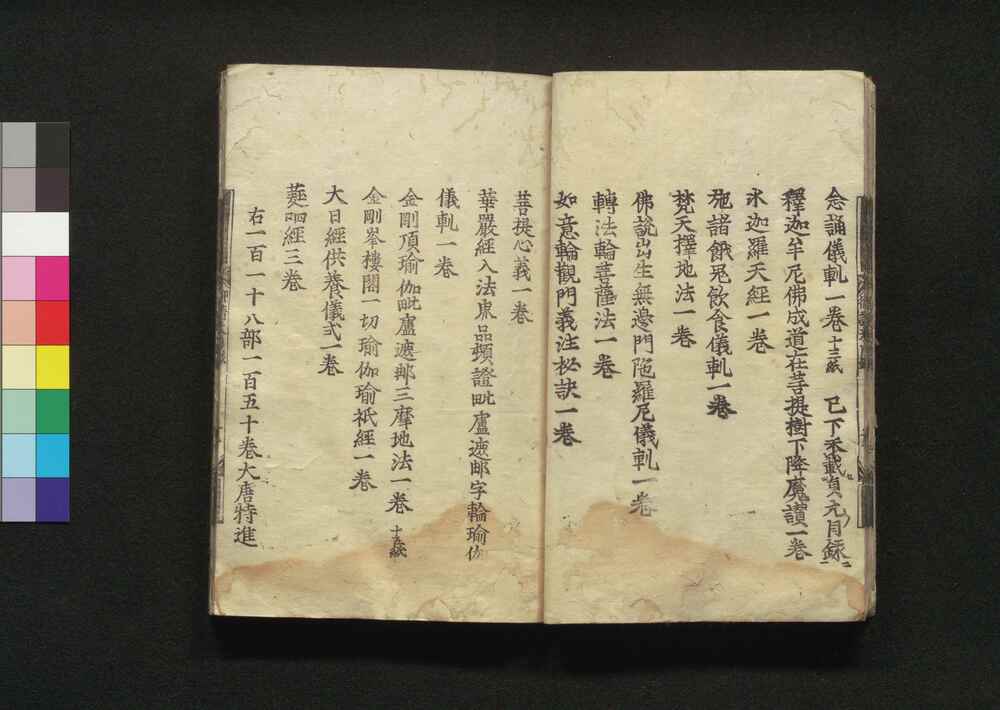 念誦儀軌一卷 十三紙 已下不載貞元目錄
釋迦牟尼佛成道在菩提樹下降魔讃一卷
氷迦羅天經一卷
施諸餓鬼飲食儀軌一卷
梵天擇地法一卷
佛說出生無邊門陁羅尼儀軌一卷
轉法輪菩薩法一卷
如意輪觀門義注秘訣一卷
菩提心義一卷
華嚴經入法界品頓證毗盧遮那字輪瑜伽
儀軌一卷
金剛頂瑜伽毗盧遮那三摩地法一卷
金剛峯樓閣一切瑜伽瑜祇經一卷
大日經供養儀式一卷
蕤呬經三卷
右一百一十八部一百五十卷大唐特進